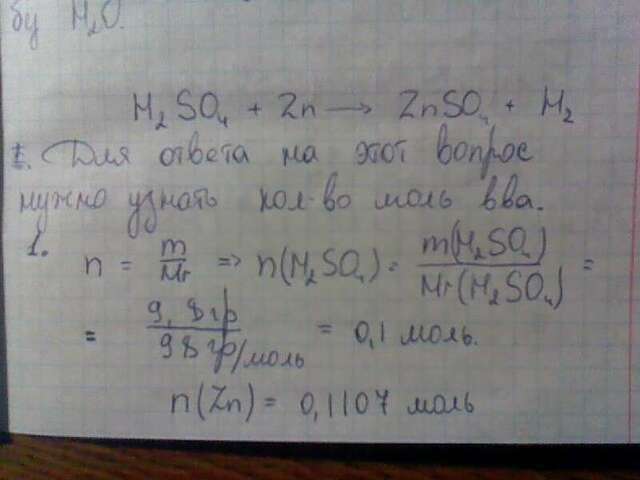 бу H₂O.
H₂SO₄ + Zn → ZnSO₄ + H₂
I. Для ответа на этот вопрос
нужно узнать кол-во моль вва.
1.
n = m/Mr => n(H₂SO₄) = m(H₂SO₄)/Mr(H₂SO₄) =
= 9,8 гр/98 гр/моль = 0,1 моль.
n(Zn) = 0,1107 моль